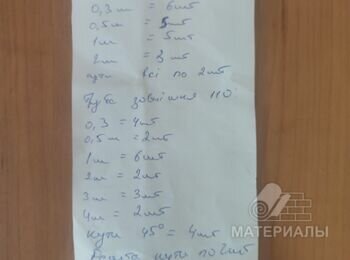 0,3 м = 6 шт
0,5 м = 5 шт
1 м = 5 шт
2 м = 3 шт
кути всі по 2 шт
Труба зовнішня 110
0,3 = 4 шт
0,5 м = 2 шт
1 м = 6 шт
2 м = 2 шт
3 м = 3 шт
4 м = 2 шт
кути 45° = 4 шт
кути по 2 шт
МАТЕРИАЛЫ